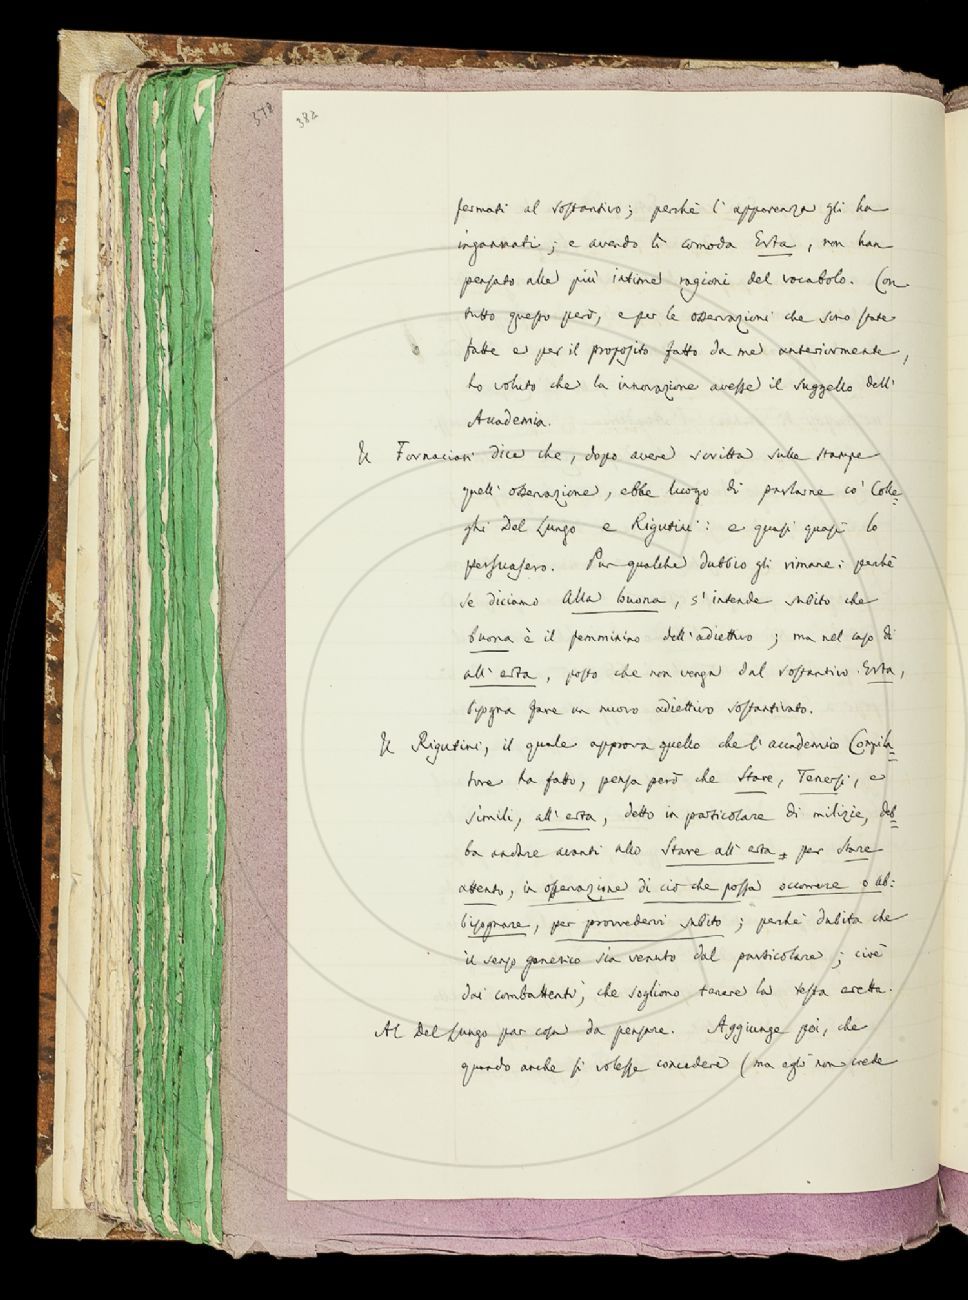 378
382
fermati al sostantivo; perchè l'apparenza gli ha
ingannati; e avendo lì comoda Erta, non han
pensato alle più intime ragioni del vocabolo. Con
tutto questo però, e per le osservazioni che sono state
fatte e per il proposito fatto da me anteriormente,
ho voluto che la innovazione avesse il suggello dell'
Accademia.
Il Fornaciari dice che, dopo avere scritta sulle stampe
quell'osservazione, ebbe luogo di parlarne co' Colle=
ghi Del Lungo e Rigutini: e quasi quasi lo
persuasero. Pur qualche dubbio gli rimane: perchè
se diciamo Alla buona, s'intende subito che
buona è il femminino dell'adiettivo; ma nel caso di
all'erta, posto che non venga dal sostantivo Erta,
bisogna fare un nuovo adiettivo sostantivato.
Il Rigutini, il quale approva quello che l'accademico Compila=
tore ha fatto, pensa però che Stare, Tenersi, e
simili, all'erta, detto in particolare di milizie, deb=
ba andare avanti allo Stare all'erta per stare
attento, in osservazione di ciò che possa occorrere o ab=
bisognare, per provvedervi subito; perchè dubita che
il senso generico sia venuto dal particolare; cioè
dai combattenti, che sogliono tenere la testa eretta.
Al Del Lungo par cosa da pensare. Aggiunge poi, che
quando anche si volesse concedere (ma egli non crede